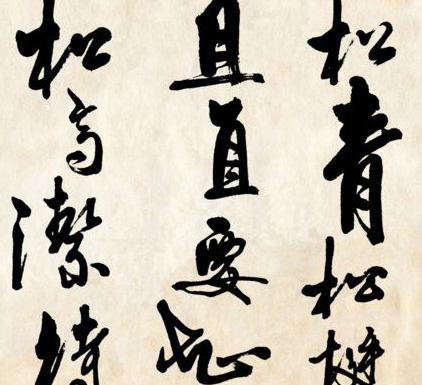 松青松挺
且直要知
松高潔待